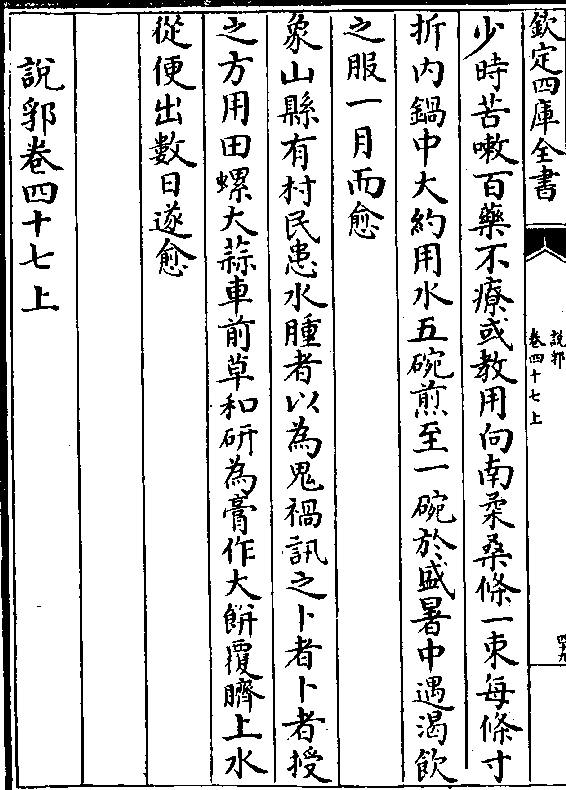 欽定四庫全書
說郛
卷四十七上
四十九
少時苦嗽百藥不療或教用向南柔桑條一束每條寸
折内鍋中大約用水五碗煎至一碗於盛暑中遇渴飲
之服一月而愈
象山縣有村民患水腫者以為鬼禍訊之卜者卜者授
之方用田螺大蒜車前草和研為膏作大餅覆臍上水
從便出數日遂愈
說郛卷四十七上